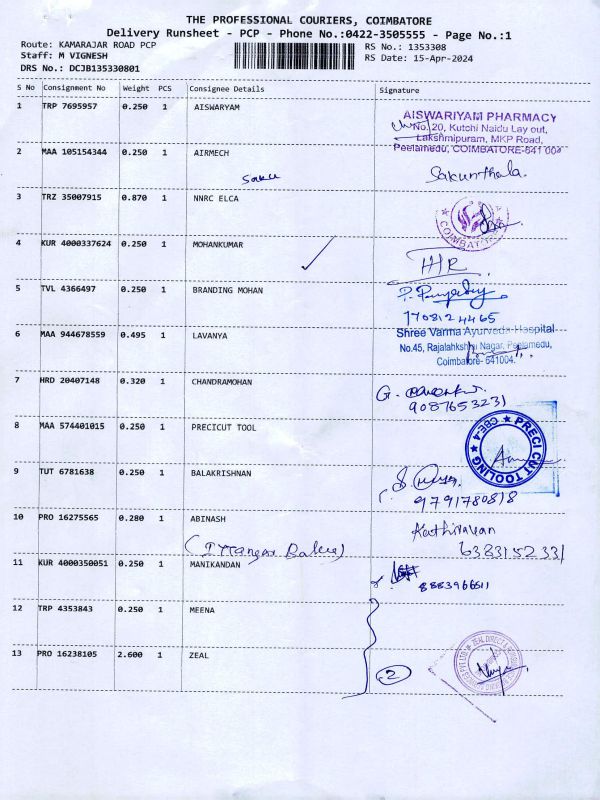 THE PROFESSIONAL COURIERS, COIMBATORE
Delivery Runsheet - PCP - Phone No.:0422-3505555 - Page No.:1
Route: KAMARAJAR ROAD PCP
Staff: M VIGNESH
DRS No.: DCJB135330801
RS No.: 1353308
RS Date: 15-Apr-2024
S No Consignment No Weight PCS Consignee Details Signature
1 TRP 7695957 0.250 1 AISWARYAM
AISWARIYAM PHARMACY
No.20, Kutchi Naidu Lay out,
Lakshmipuram, MKP Road,
Peelamedu, COIMBATORE-641 004
2 MAA 105154344 0.250 1 AIRMECH
Saku
Sakunthala.
3 TRZ 35007915 0.870 1 NNRC ELCA
COIMBATORE
4 KUR 4000337624 0.250 1 MOHANKUMAR
5 TVL 4366497 0.250 1 BRANDING MOHAN
1708124465
6 MAA 944678559 0.495 1 LAVANYA
Shree Varma Ayurveda Hospital
No.45, Rajalahkshmi Nagar, Peelamedu,
Coimbatore- 641004.
7 HRD 20407148 0.320 1 CHANDRAMOHAN
9087653231
8 MAA 574401015 0.250 1 PRECICUT TOOL
PRECI CUT TOOLING
CBE-4
9 TUT 6781638 0.250 1 BALAKRISHNAN
9791780818
10 PRO 16275565 0.280 1 ABINASH
Kathiravan
6383152331
11 KUR 4000350051 0.250 1 MANIKANDAN
8883966511
12 TRP 4353843 0.250 1 MEENA
13 PRO 16238105 2.600 1 ZEAL
2